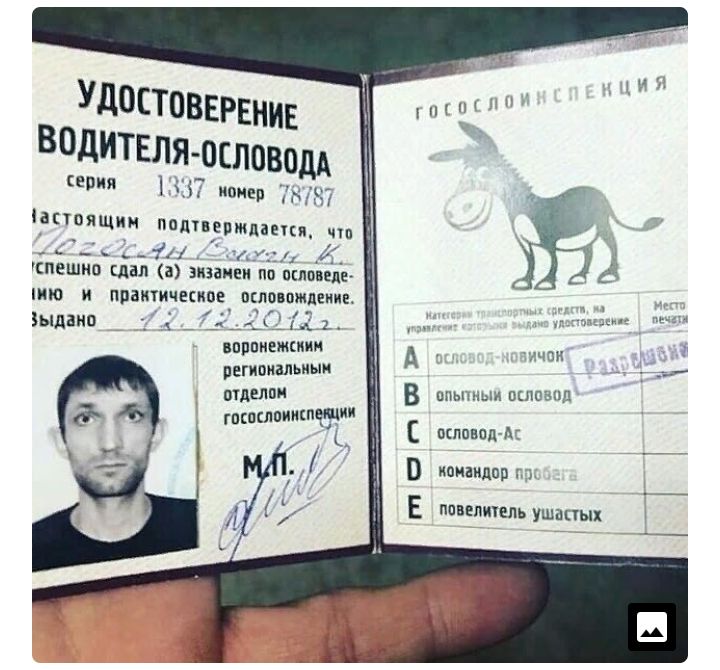 УДОСТОВЕРЕНИЕ
ВОДИТЕЛЯ-ОСЛОВОДА
серия 1337 номер 78787
Настоящим подтверждается, что
Погосян Ваагн К.
успешно сдал (а) экзамен по ословеде-
нию и практическое ословождение.
Выдано 12.12.2012г.
воронежским
региональным
отделом
госослоинспекции
М.П.
ГОСОСЛОИНСПЕКЦИЯ
Категории транспортных средств, на
управление которыми выдано удостоверение
Место
печати
A ословод-новичок
Разрешено
B опытный ословод
C ословод-Ас
D командор пробега
E повелитель ушастых